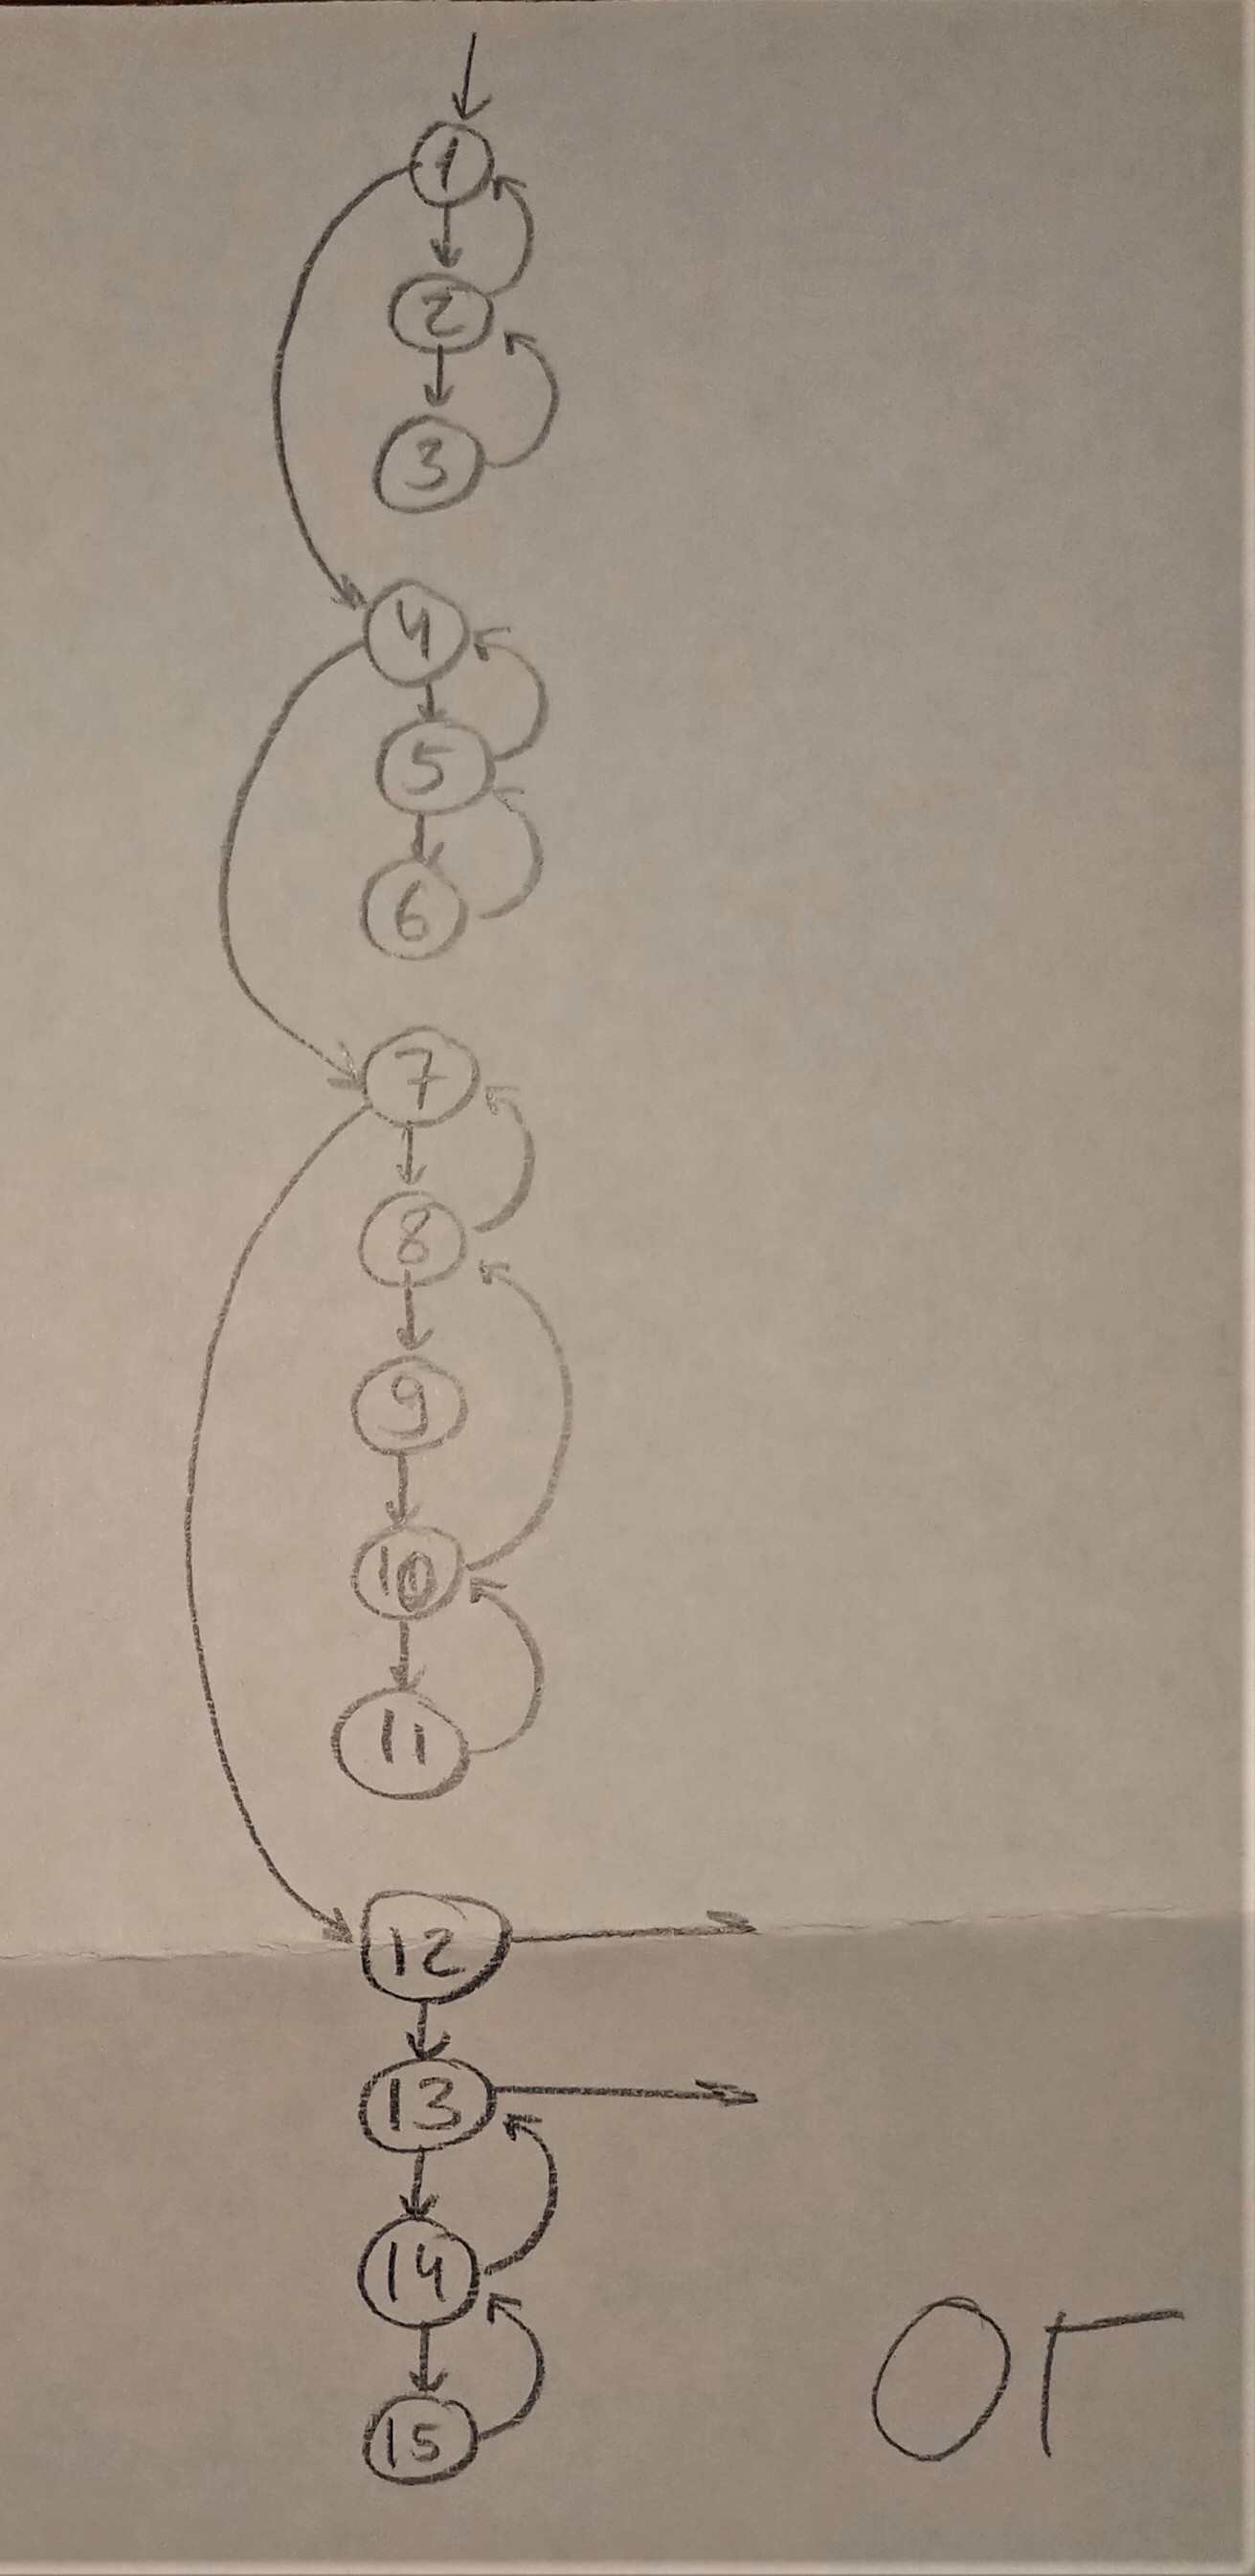 1
2
3
4
5
6
7
8
9
10
11
12
13
14
15
ОГ